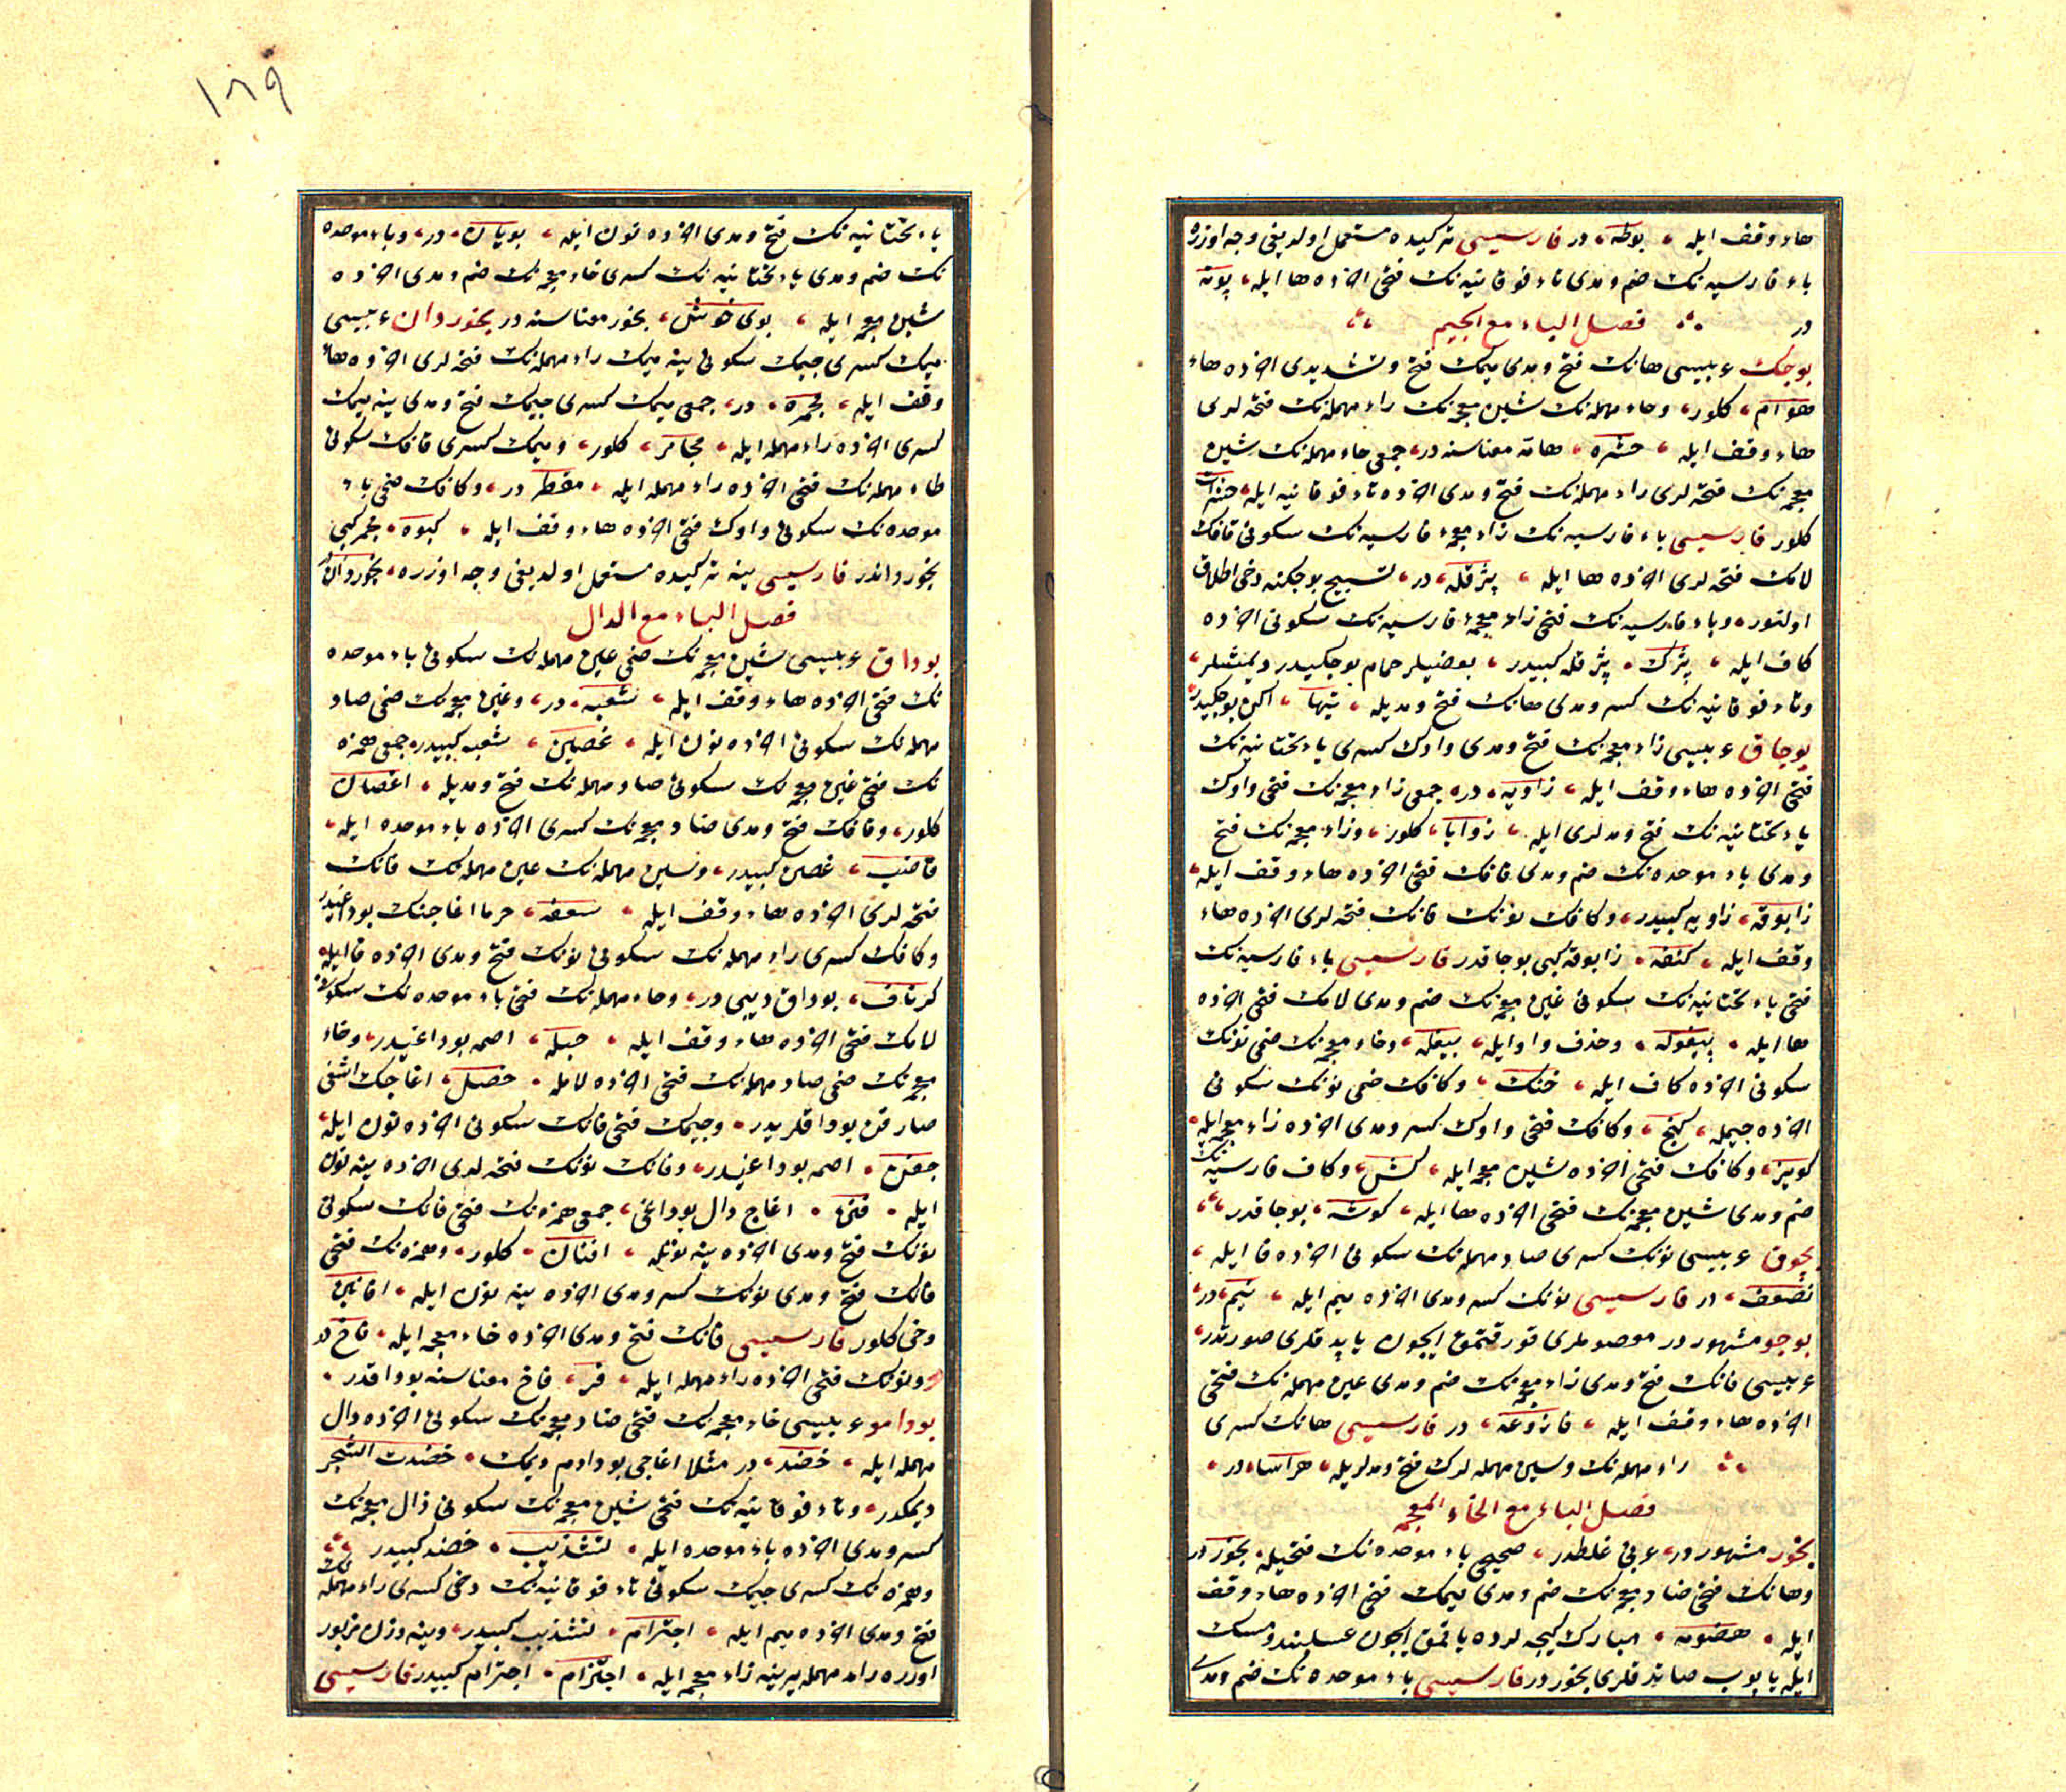 هاء وقف ايله ، بوطه ، در فارسيسى تركيده مستعمل اولديغى وجه اوزره
باء فارسيه نك ضم ومدى تاء فوقانيه نك فتحى اخرده ها ايله ، پوته
در فصل الباء مع الجيم
بوجك عربيسى هانك فتح ومدى ميمك فتح وتشديدى اخرده هاء
هوام ، كلور ، وحاء مهمله نك شين معجمه نك راء مهمله نك فتحه لرى
هاء وقف ايله ، حشره ، هامه معناسنه در ، جمعى حاء مهمله نك شين
معجمه نك فتحه لرى راء مهمله نك فتح ومدى اخرده تاء فوقانيه ايله ، حشرات
كلور فارسيسى باء فارسيه نك زاء معجمه فارسيه نك سكونى قافك
لامك فتحه لرى اخرده ها ايله ، پژقله ، در ، تسبيح بوجكنه دخى اطلاق
اولنور ، وباء فارسيه نك فتحى زاء معجمه فارسيه نك سكونى اخرده
كاف ايله ، پژك ، پژقله كبيدر ، بعضيلر حمام بوجكيدر ديمشلر ،
وتاء فوقانيه نك كسر ومدى هانك فتح ومديله ، تيها ، اكين بوجكيدر
بوجاق عربيسى زاء معجمه نك فتح ومدى واوك كسرى ياء تحتانيه نك
فتحى اخرده هاء وقف ايله ، زاويه ، در ، جمعى زاء معجمه نك فتحى واوك
ياء تحتانيه نك فتح ومدلرى ايله ، زوايا ، كلور ، وزاء معجمه نك فتح
ومدى باء موحده نك ضم ومدى قافك فتحى اخرده هاء وقف ايله ،
زابوقه ، زاويه كبيدر ، وكافك نونك فانك فتحه لرى اخرده هاء
وقف ايله ، كنفه ، زابوقه كبى بوجاقدر فارسيسى باء فارسيه نك
فتحى ياء تحتانيه نك سكونى غين معجمه نك ضم ومدى لامك فتحى اخرده
ها ايله ، پيغوله ، وحذف واو ايله ، پيغله ، وخاء معجمه نك ضمى نونك
سكونى اخرده كاف ايله ، خنك ، وكافك ضمى نونك سكونى
اخرده جيمله ، كنج ، وكافك فتحى واوك كسر ومدى اخرده زاء معجمه ايله ،
كويز ، وكافك فتحى اخرده شين معجمه ايله ، كش ، وكاف فارسيه نك
ضم ومدى شين معجمه نك فتحى اخرده ها ايله ، كوشه ، بوجاقدر ،
بچوق عربيسى نونك كسرى صاد مهمله نك سكونى اخرده فا ايله ،
نصف ، در فارسيسى نونك كسر ومدى اخرده ميم ايله ، نيم ، در ،
بوجو مشهور در معصوملرى قورقتمق ايچون ياپدقلرى صورتدر ،
عربيسى فانك فتح ومدى زاء معجمه نك ضم ومدى عين مهمله نك فتحى
اخرده هاء وقف ايله ، فازوعه ، در فارسيسى هانك كسرى
راء مهمله نك وسين مهمله لرك فتح ومدلريله ، هراسا ، در ،
فصل الباء مع الخاء المعجمه
بخور مشهور در ، عربى غلطدر ، صحيحى باء موحده نك فتحيله ، بخور در
وهانك فتحى ضاد معجمه نك ضم ومدى ميمك فتحى اخرده هاء وقف
ايله ، هضومه ، مبارك كيجه لرده ياقمق ايچون عسلبند ومسك
ايله ياپوب صاتدقلرى بخور در فارسيسى باء موحده نك ضم ومدى
١٨٩
ياء تحتانيه نك فتح ومدى اخرده نون ايله ، بويان ، در ، وباء موحده
نك ضم ومدى ياء تحتانيه نك كسرى خاء معجمه نك ضم ومدى اخرده
شين معجمه ايله ، بوى خوش ، بخور معناسنه در بخوردان عربيسى
ميمك كسرى جيمك سكونى ينه ميمك راء مهمله نك فتحه لرى اخرده هاء
وقف ايله ، مجمره ، در ، جمعى ميمك كسرى جيمك فتح ومدى ينه ميمك
كسرى اخرده راء مهمله ايله ، مجامر ، كلور ، وميمك كسرى قافك سكونى
طاء مهمله نك فتحى اخرده راء مهمله ايله ، مقطر در ، وكافك ضمى باء
موحده نك سكونى واوك فتحى اخرده هاء وقف ايله ، كبوه ، مجمر كبى
بخورداندر فارسيسى ينه تركيده مستعمل اولديغى وجه اوزره ، بخوردان در
فصل الباء مع الدال
بوداق عربيسى شين معجمه نك ضمى عين مهمله نك سكونى باء موحده
نك فتحى اخرده هاء وقف ايله ، شعبه ، در ، وغين معجمه نك ضمى صاد
مهمله نك سكونى اخرده نون ايله ، غصن ، شعبه كبيدر ، جمعى همزه
نك فتحى غين معجمه نك سكونى صاد مهمله نك فتح ومديله ، اغصان
كلور ، وقافك فتح ومدى ضاد معجمه نك كسرى اخرده باء موحده ايله ،
قاضب ، غصن كبيدر ، وسين مهمله نك عين مهمله نك فانك
فتحه لرى اخرده هاء وقف ايله ، سعفه ، خرما اغاجنك بوداغيدر
وكافك كسرى راء مهمله نك سكونى نونك فتح ومدى اخرده فا ايله ،
كرناف ، بوداق ديبى در ، وحاء مهمله نك فتحى باء موحده نك سكونى
لامك فتحى اخرده هاء وقف ايله ، حبله ، اصمه بوداغيدر ، وخاء
معجمه نك ضمى صاد مهمله نك فتحى اخرده لامله ، خصل ، اغاجك اشغى
صارقن بوداقلريدر ، وجيمك فتحى فانك سكونى اخرده نون ايله ،
جفن ، اصمه بوداغيدر ، وفانك نونك فتحه لرى اخرده ينه نون
ايله ، فنن ، اغاج دال بوداغى ، جمعى همزه نك فتحى فانك سكونى
نونك فتح ومدى اخرده ينه نونله ، افنان ، كلور ، وهمزه نك فتحى
فانك فتح ومدى نونك كسر ومدى اخرده ينه نون ايله ، افانين
دخى كلور فارسيسى فانك فتح ومدى اخرده خاء معجمه ايله ، فاخ در
ونونك فتحى اخرده راء مهمله ايله ، فاخ معناسنه بوداقدر ،
بودامو عربيسى خاء معجمه نك فتحى ضاد معجمه نك سكونى اخرده دال
مهمله ايله ، خضد ، در مثلا اغاجى بودادم ديمك ، خضدت الشجر
ديمكدر ، وتاء فوقانيه نك فتحى شين معجمه نك سكونى ذال معجمه نك
كسر ومدى اخرده باء موحده ايله ، تشذيب ، خضد كبيدر
وهمزه نك كسرى جيمك سكونى تاء فوقانيه نك دخى كسرى راء مهمله نك
فتح ومدى اخرده ميم ايله ، اجترام ، تشذيب كبيدر ، وينه وزن مزبور
اوزره راء مهمله يرينه زاء معجمه ايله ، اجتزام ، اجترام كبيدر فارسيسى